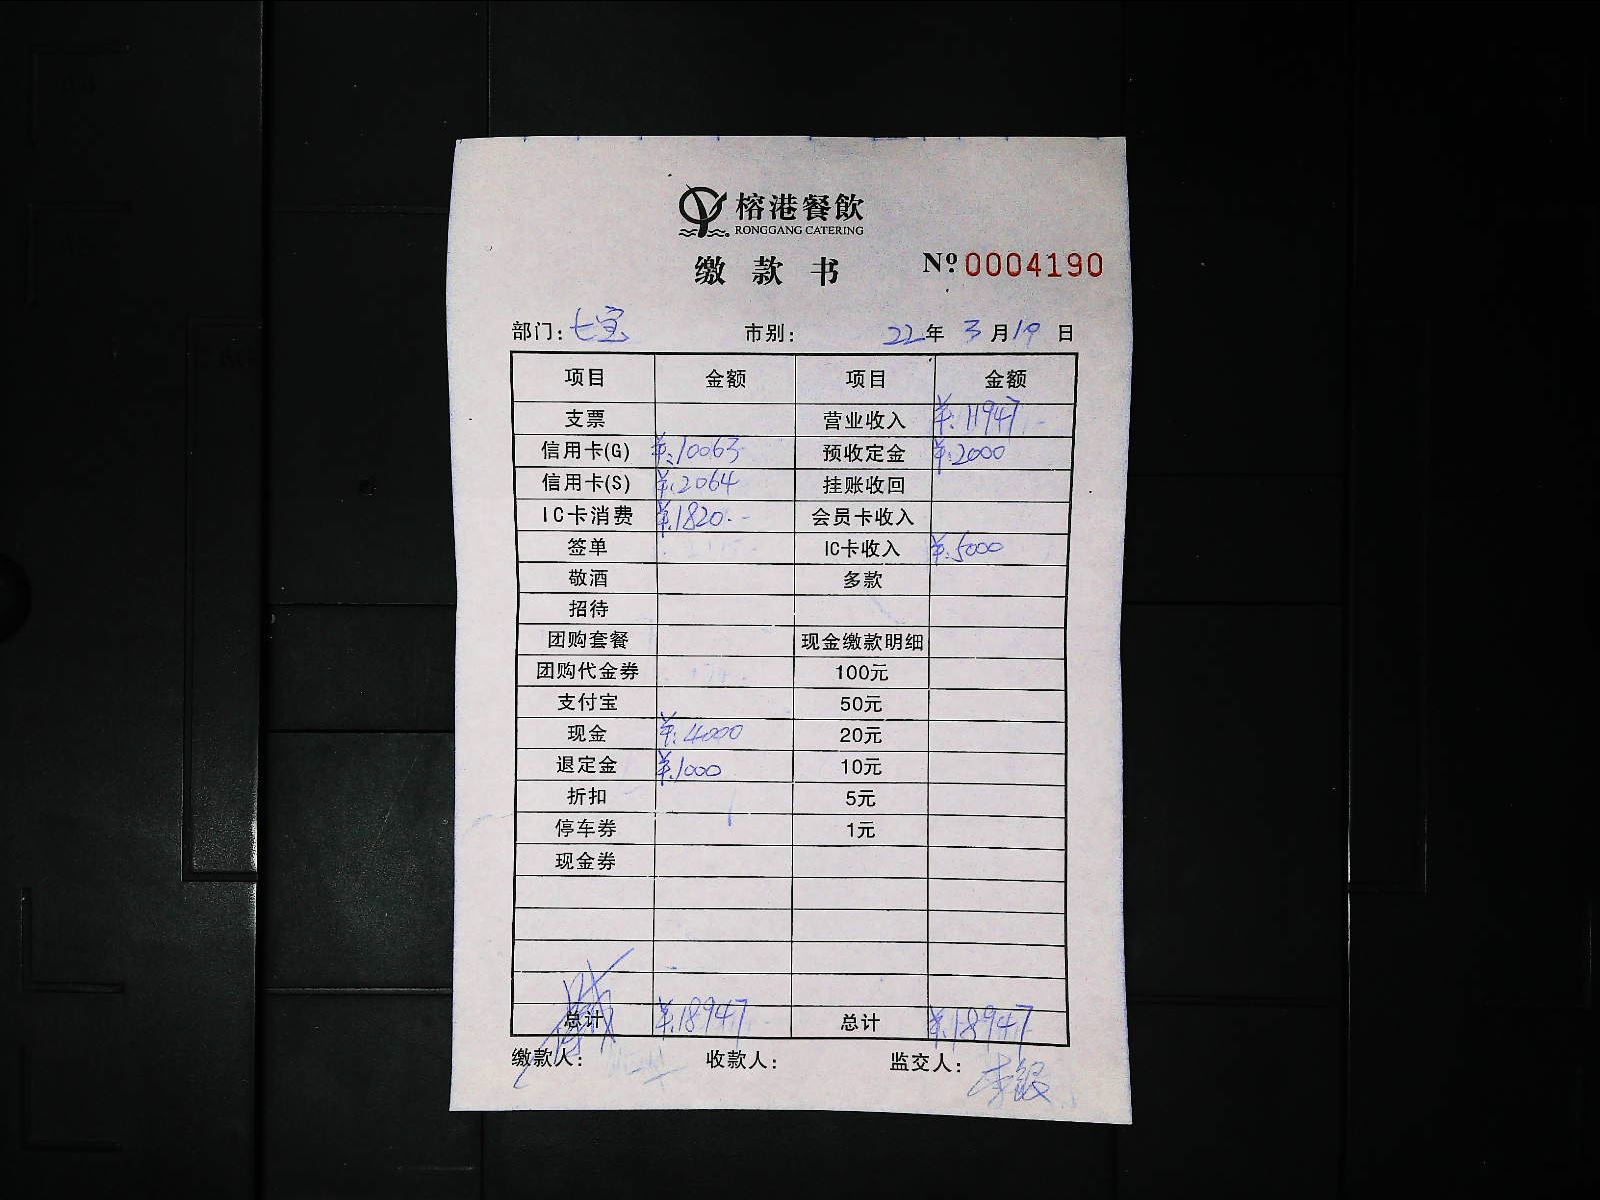 榕港餐飲
RONGGANG CATERING
缴款书 Nº 0004190
部门: 七宝 市别: 22年 3月19日
项目 金额 项目 金额
支票 营业收入 ¥:11947.-
信用卡(G) ¥:10063 预收定金 ¥:2000
信用卡(S) ¥:2064 挂账收回
IC卡消费 ¥:1820.- 会员卡收入
签单 IC卡收入 ¥:5000
敬酒 多款
招待
团购套餐 现金缴款明细
团购代金券 100元
支付宝 50元
现金 ¥:4000 20元
退定金 ¥:1000 10元
折扣 5元
停车券 1元
现金券
总计 ¥:18947 总计 ¥:18947
缴款人: 收款人: 监交人: 李银